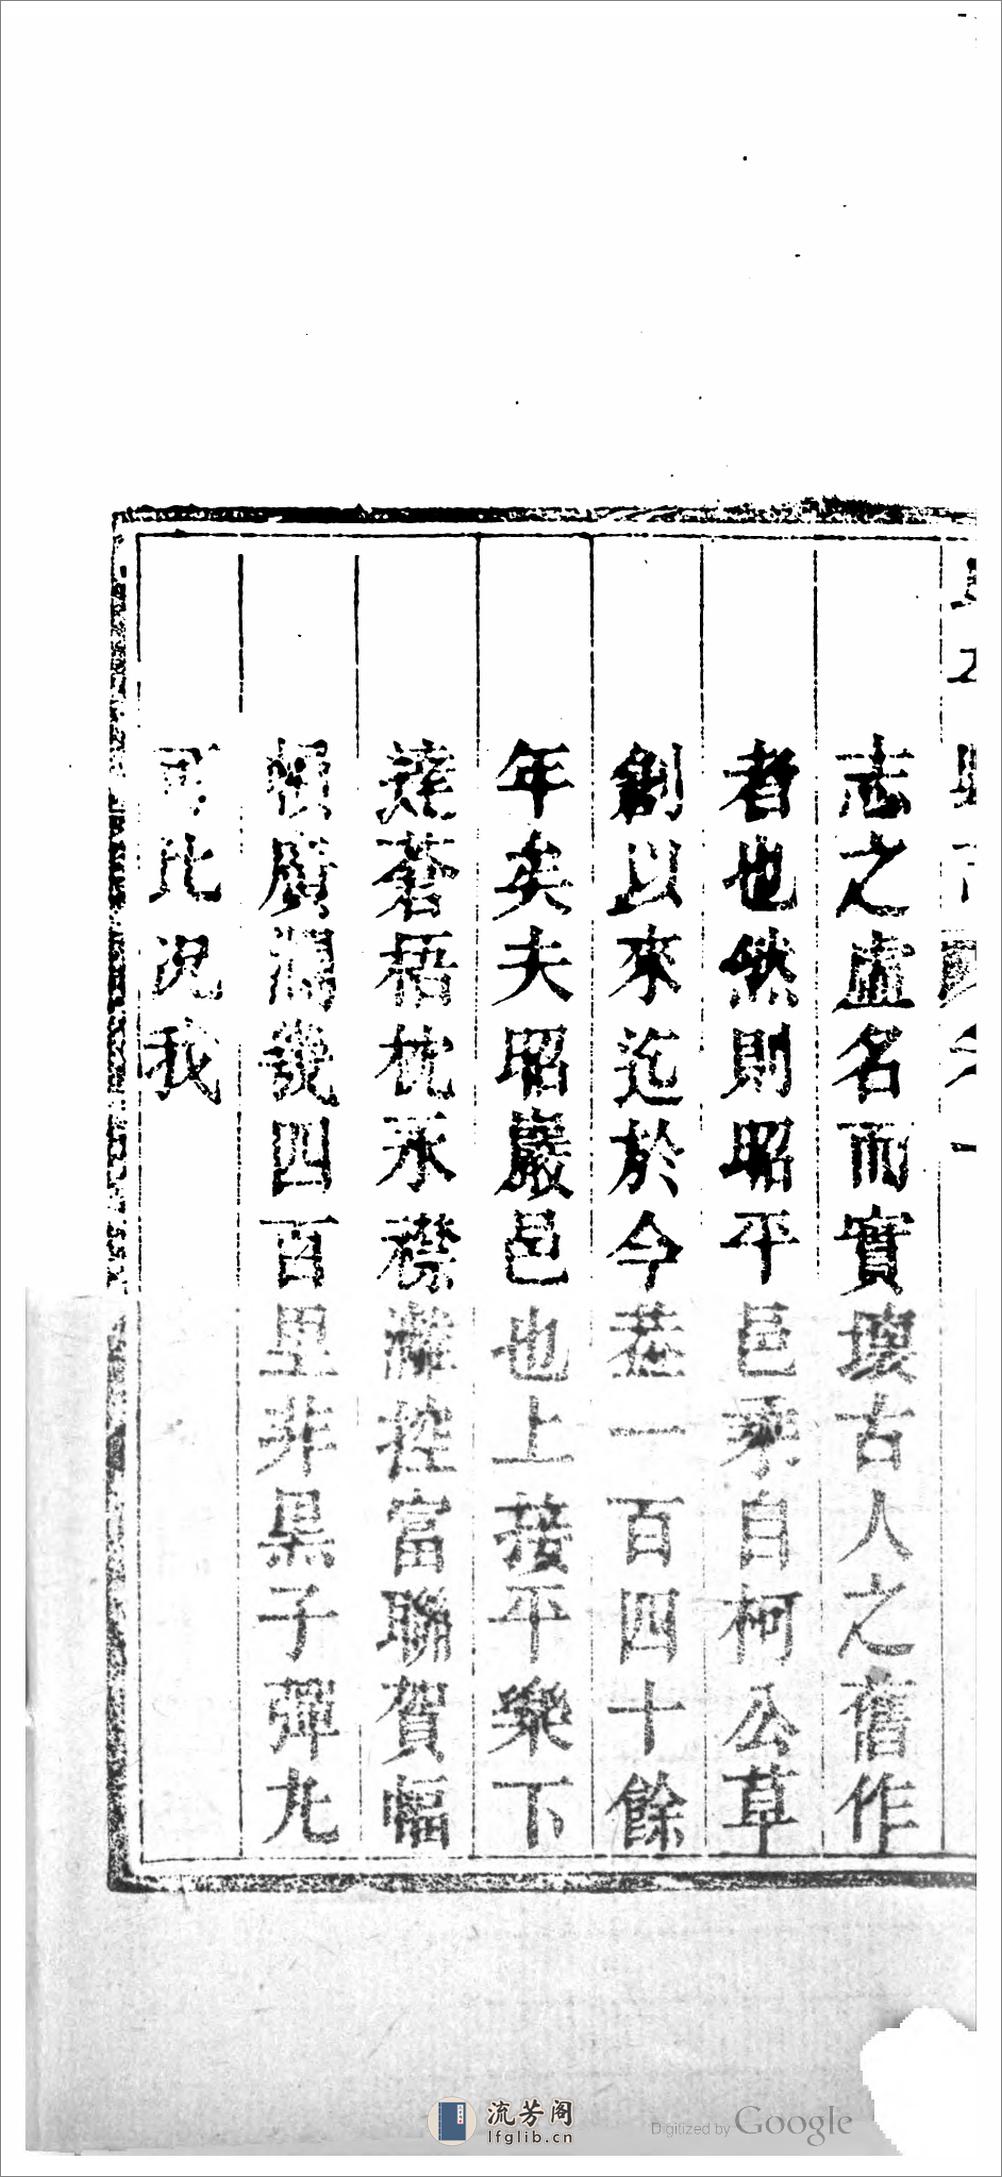 志之虛名而實壞古人之舊作
者也然則昭平邑乘自柯公草
創以來迄於今茬一百四十餘
年矣夫昭巖邑也上接平樂下
達蒼梧枕永襟灕控富聯賀幅
廣濶幾四百里非黑子彈丸
可比況我
流芳阁
lfglib.cn
Digitized by Google